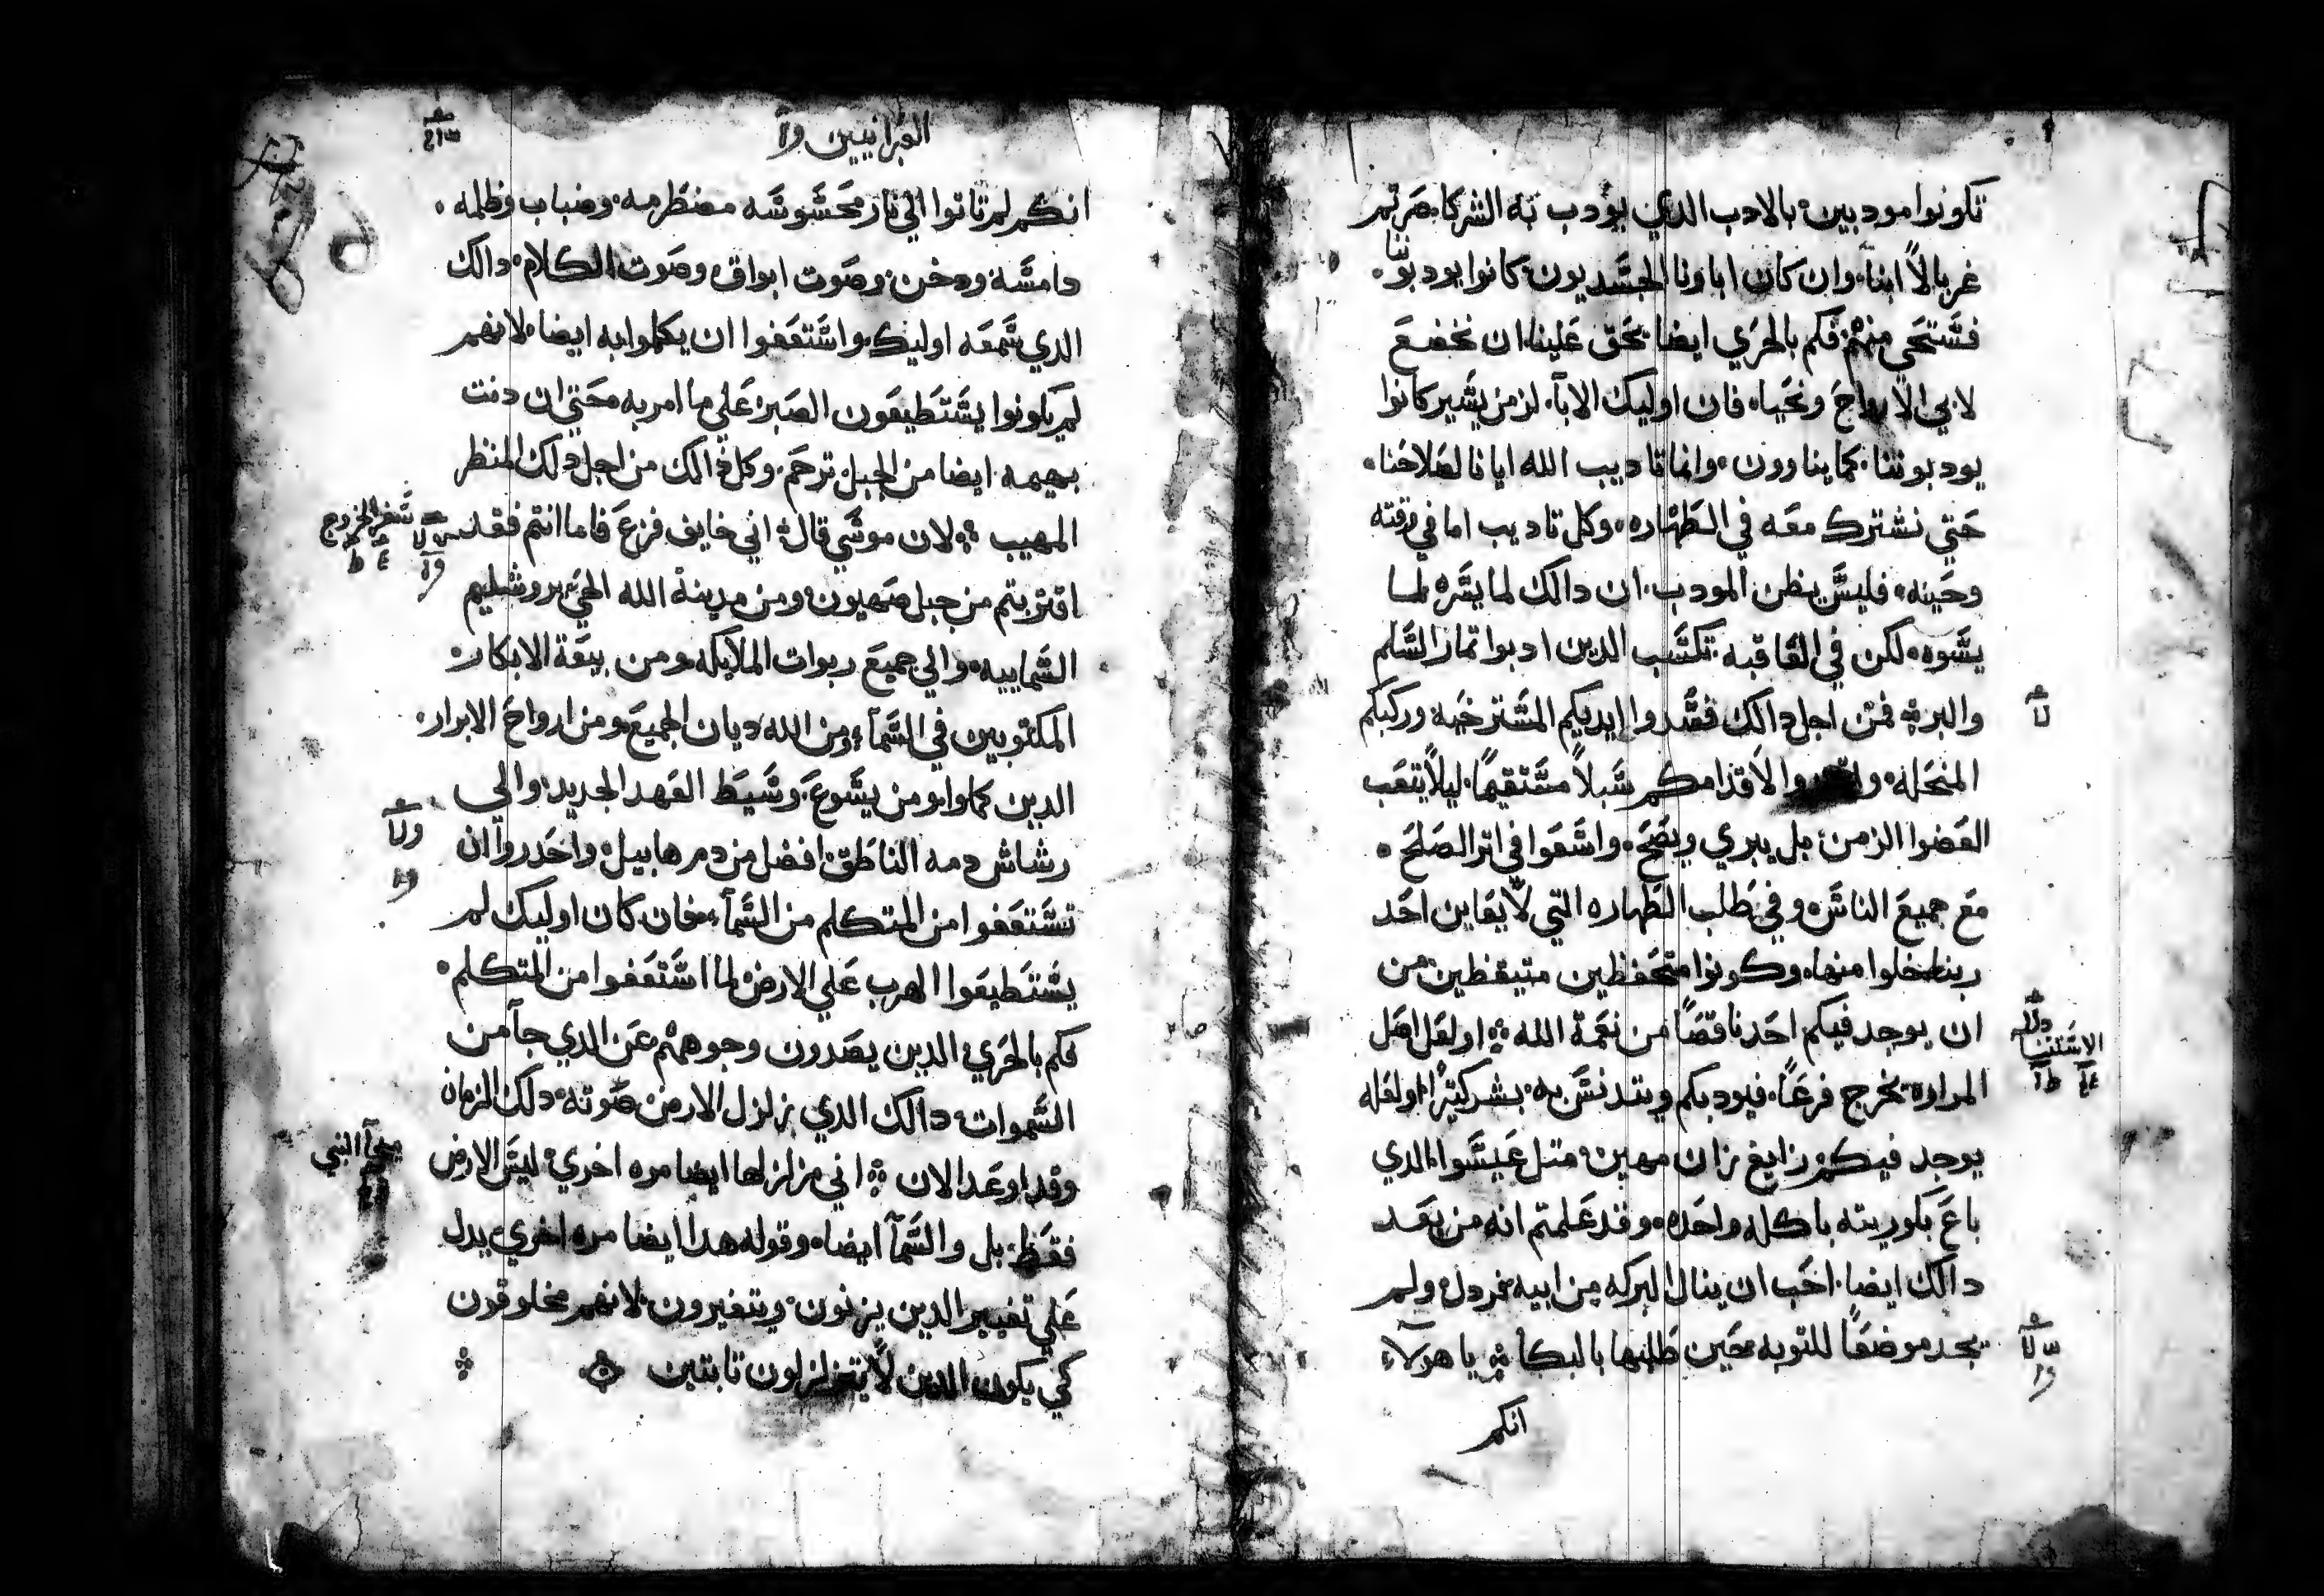 تكونوا مودبين بالادب الدي يودب به الشركا صرتم
غربا لا ابنا وان كان اباونا الجسديون كانوا يودبوننا
فنستحي منهم فكم بالحري ايضا يحق علينا ان نخضع
لابي الارواح ونحيا فان اوليك الابا لزمن يسير كانوا
يودبوننا كما يناورون وانما تاديب الله ايانا لصلاحنا
حتي نشترك معه في الطهاره وكل تاديب اما في وقته
وحينه فليس يظن المودب ان دالك لما يسره لما
يسوه لكن في العاقبه تكسب الدين ادبوا تمار السلم
والبر فمن اجل دالك فشدوا ايديكم المسترخيه وركبكم
المنحله والاقدامكم سبلا مستقيما ليلا يتعب
العضوا الزمن بل يبري ويصح واسعوا في اتر الصلح
مع جميع الناس وفي طلب الطهاره التي لا يعاين احد
ربنا خلوا منها وكونوا متحفظين متيقظين من
ان يوجد فيكم احد ناقصا من نعمة الله او لعل اصل
المراره يخرج فرعا فيوديكم ويتدنس به بشر كتيرا او لعله
يوجد فيكم زايغ زان مهين متل عيسوا الدي
باع بكوريته باكله واحده وقد علمتم انه من بعد
دالك ايضا احب ان ينال البركه من ابيه فردل ولم
يجد موضعا للتوبه حين طلبها بالبكا يا هولاء
انكم
الاستتنا
العبرانيين
انكم لم تاتوا الي نار محسوسه مضطرمه وضباب وظلمه
دامسه ودخن وصوت ابواق وصوت الكلام دالك
الدي سمعه اوليك واستعفوا ان يكلموا به ايضا لانهم
لم يكونوا يستطيعون الصبر علي ما امر به حتي ان دنت
بهيمه ايضا من الجبل ترجم وكل دالك من اجل دلك المنظر
المهيب لان موسي قال اني خايف فزع فاما انتم فقد
اقتربتم من جبل صهيون ومن مدينة الله الحي يروشليم
السماييه والي جميع ربوات الملايكه ومن بيعة الابكار
المكتوبين في السمآ ومن الله ديان الجميع ومن ارواح الابرار
الدين كملوا ومن يسوع وسيط العهد الجديد والي
رشاش دمه الناطق افضل من دم هابيل واحدروا ان
تستعفوا من المتكلم من السمآ فان كان اوليك لم
يستطيعوا الهرب علي الارض لما استعفوا من المتكلم
فكم بالحري الدين يصدون وجوههم عن الدي جآ من
السموات دالك الدي زلزل الارض صوته دلك الزمان
وقد اوعد الان اني مزلزلها ايضا مره اخري ليس الارض
فقط بل والسمآ ايضا وقوله هدا ايضا مره اخري يدل
علي تغيير الدين يزنون ويتغيرون لانهم مخلوقون
كي يكون الدين لا يتزلزلون تابتين
سفر الخروج
النبي